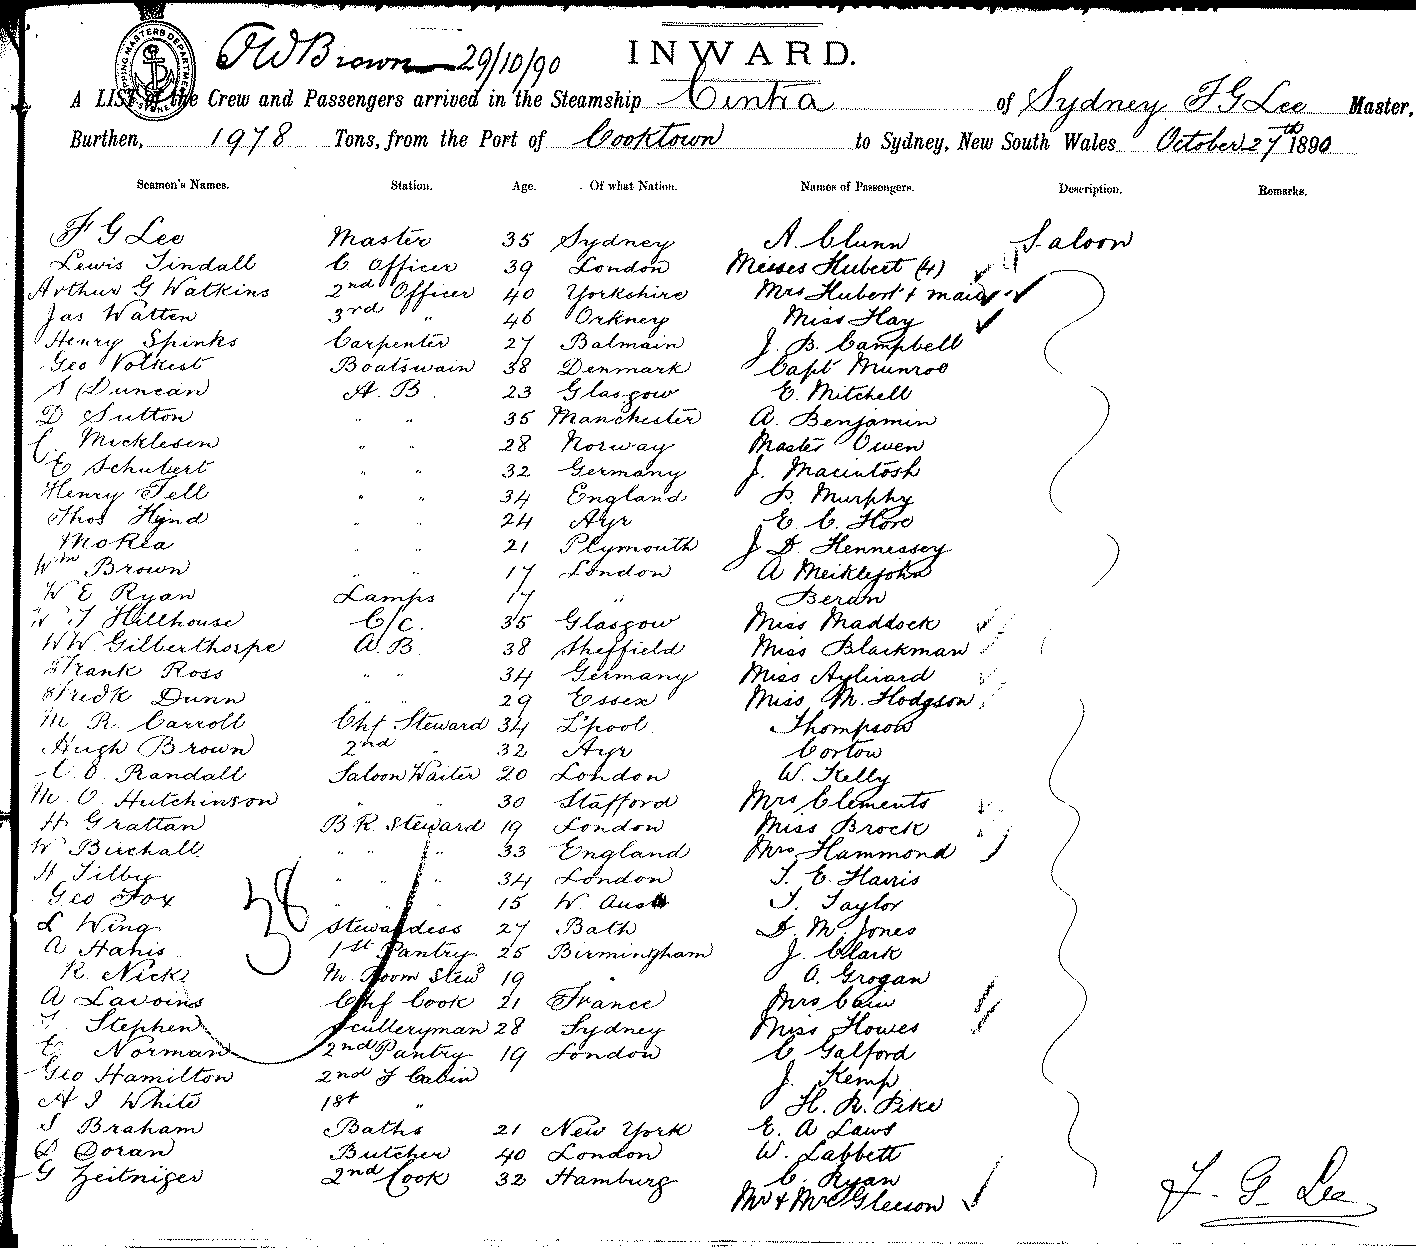 SHIPPING MASTERS DEPARTMENT
F W Brown 29/10/90
INWARD.
A LIST of the Crew and Passengers arrived in the Steamship Cintra of Sydney F G Lee Master,
Burthen, 1978 Tons, from the Port of Cooktown to Sydney, New South Wales October 27th 1890
Seamen's Names. Station. Age. Of what Nation. Names of Passengers. Description. Remarks.
F G Lee Master 35 Sydney A. Clunn Saloon
Lewis Tindall C. Officer 39 London Misses Hubert (4)
Arthur G Watkins 2nd Officer 40 Yorkshire Mrs Hubert + maid
Jas Watten 3rd " 46 Orkney Miss Hay
Henry Spinks Carpenter 27 Balmain J. B. Campbell
Geo Volkest Boatswain 38 Denmark Capt Munroe
Duncan A. B. 23 Glasgow E. Mitchell
D Sutton " " 35 Manchester A. Benjamin
C Micklesen " " 28 Norway Master Owen
E Schubert " " 32 Germany J. Macintosh
Henry Tell " " 34 England Murphy
Thos Hynd " " 24 Ayr E. C. Hore
McRea " " 21 Plymouth J D. Hennessey
Wm Brown " " 17 London A Meiklejohn
W E Ryan Lamps 17 " Beran
W T Hillhouse C/c. 35 Glasgow Miss Maddock
WW Gilberthorpe A. B. 38 Sheffield Miss Blackman
Frank Ross " " 34 Germany Miss Ayliward
Fredk Dunn " " 29 Essex Miss M. Hodgson
M R. Carroll Chf Steward 34 L'pool Thompson
Hugh Brown 2nd " 32 Ayr Corton
C. O. Randall Saloon Waiter 20 London W. Kelly
M. O. Hutchinson " " 30 Stafford Mrs Clements
H Grattan B R. Steward 19 London Miss Brock
W Birchall " " " 33 England Mrs Hammond
H Tilby " " " 34 London T. E. Harris
Geo Fox " " " 15 W. Aust T. Taylor
L Wing Stewardess 27 Bath D. M. Jones
A Hanis 1st Pantry 25 Birmingham J. Clark
R. Nicks M. Room Stewd 19 " O. Grogan
A Lavoins Chf Cook 21 France Mrs Cain
Stephen Sculleryman 28 Sydney Miss Howes
Norman 2nd Pantry 19 London C. Galford
Geo Hamilton 2nd F Cabin J. Kemp
A J White 1st " H. R. Pike
S Braham Baths 21 New York E. A Laws
D Doran Butcher 40 London W. Labbett
G Zeitniger 2nd Cook 32 Hamburg C. Ryan
Mr + Mrs Gleeson
38
F. G. Lee